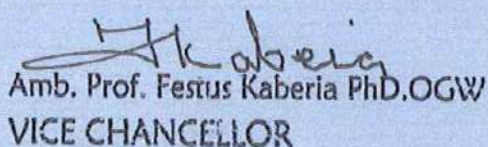 Kaberia
Amb. Prof. Festus Kaberia PhD.OGW
VICE CHANCELLOR